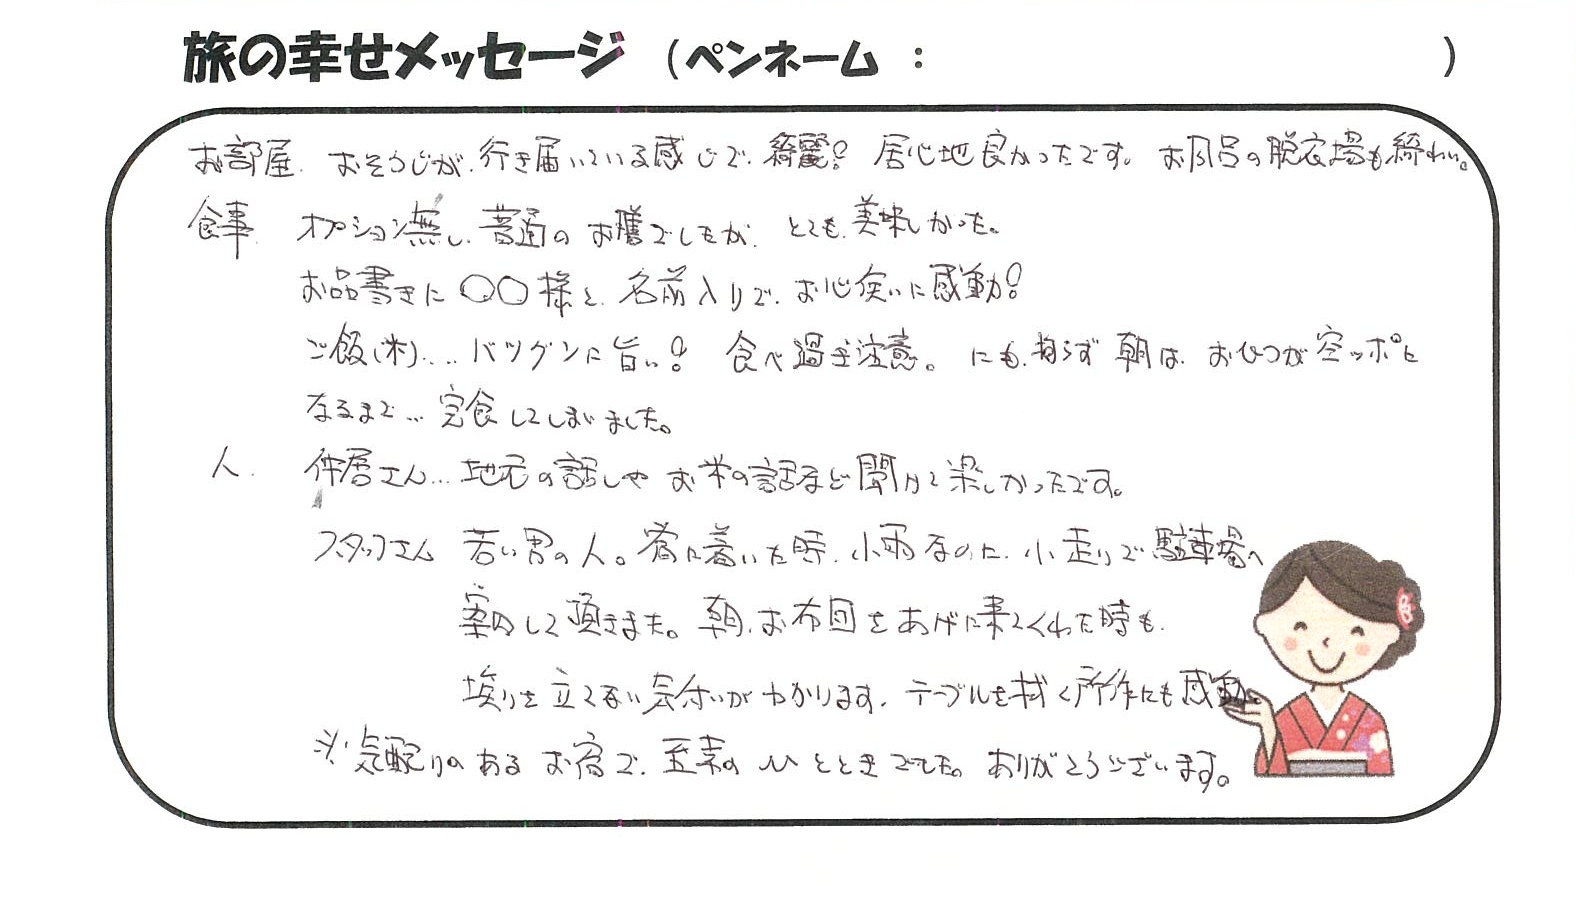 旅の幸せメッセージ (ペンネーム : )
お部屋. おそうじが、行き届いている感じで、綺麗! 居心地良かったです。お風呂の脱衣場も綺れい。
食事. オプション無し、普通のお膳でしたが、とても美味しかった。
お品書きに ○○様と、名前入りで、お心使いに感動!
ご飯(米)…. バツグンに旨い! 食べ過ぎ注意。にも、拘らず 朝は、おひつが空ッポに
なるまで… 完食してしまいました。
人. 仲居さん… 地元の話しや お米の話など聞けて楽しかったです。
スタッフさん 若い男の人。宿に着いた時、小雨なのに、小走りで駐車場へ
案内して頂きました。朝、お布団をあげに来てくれた時も、
埃りを立てない気づかいがわかります。テーブルを拭く所作にも感動。
※ 気配りのあるお宿で、至素のひとときでした。ありがとうございます。